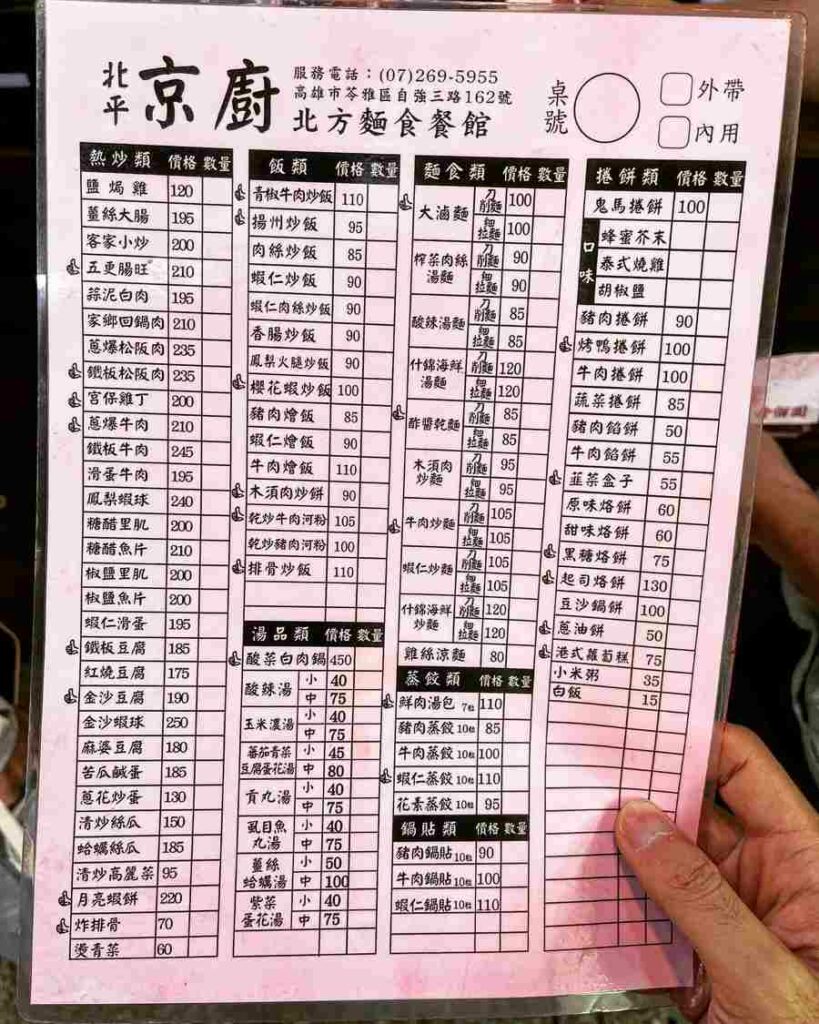 北平 京廚
服務電話：(07)269-5955
高雄市苓雅區自強三路162號
北方麵食餐館
桌號
外帶
內用
熱炒類 價格 數量
鹽焗雞 120
薑絲大腸 195
客家小炒 200
五更腸旺 210
蒜泥白肉 195
家鄉回鍋肉 210
蔥爆松阪肉 235
鐵板松阪肉 235
宮保雞丁 200
蔥爆牛肉 210
鐵板牛肉 245
滑蛋牛肉 195
鳳梨蝦球 240
糖醋里肌 200
糖醋魚片 210
椒鹽里肌 200
椒鹽魚片 200
蝦仁滑蛋 195
鐵板豆腐 185
紅燒豆腐 175
金沙豆腐 190
金沙蝦球 250
麻婆豆腐 180
苦瓜鹹蛋 185
蔥花炒蛋 130
清炒絲瓜 150
蛤蠣絲瓜 185
清炒高麗菜 95
月亮蝦餅 220
炸排骨 70
燙青菜 60
飯類 價格 數量
青椒牛肉炒飯 110
揚州炒飯 95
肉絲炒飯 85
蝦仁炒飯 90
蝦仁肉絲炒飯 90
香腸炒飯 90
鳳梨火腿炒飯 90
櫻花蝦炒飯 100
豬肉燴飯 85
蝦仁燴飯 90
牛肉燴飯 110
木須肉炒餅 90
乾炒牛肉河粉 105
乾炒豬肉河粉 100
排骨炒飯 110
湯品類 價格 數量
酸菜白肉鍋 450
酸辣湯 小 40
中 75
玉米濃湯 小 40
中 75
蕃茄青菜豆腐蛋花湯 小 45
中 80
貢丸湯 小 40
中 75
虱目魚丸湯 小 40
中 75
薑絲蛤蠣湯 小 50
中 100
紫菜蛋花湯 小 40
中 75
麵食類 價格 數量
大滷麵 刀削麵 100
細拉麵 100
榨菜肉絲湯麵 刀削麵 90
細拉麵 90
酸辣湯麵 刀削麵 85
細拉麵 85
什錦海鮮湯麵 刀削麵 120
細拉麵 120
酢醬乾麵 刀削麵 85
細拉麵 85
木須肉炒麵 刀削麵 95
細拉麵 95
牛肉炒麵 刀削麵 105
細拉麵 105
蝦仁炒麵 刀削麵 105
細拉麵 105
什錦海鮮炒麵 刀削麵 120
細拉麵 120
雞絲涼麵 80
蒸餃類 價格 數量
鮮肉湯包 7粒 110
豬肉蒸餃 10粒 85
牛肉蒸餃 10粒 100
蝦仁蒸餃 10粒 110
花素蒸餃 10粒 95
鍋貼類 價格 數量
豬肉鍋貼 10粒 90
牛肉鍋貼 10粒 100
蝦仁鍋貼 10粒 110
捲餅類 價格 數量
鬼馬捲餅 100
口味 蜂蜜芥末
泰式燒雞
胡椒鹽
豬肉捲餅 90
烤鴨捲餅 100
牛肉捲餅 100
蔬菜捲餅 85
豬肉餡餅 50
牛肉餡餅 55
韮菜盒子 55
原味烙餅 60
甜味烙餅 60
黑糖烙餅 75
起司烙餅 130
豆沙鍋餅 100
蔥油餅 50
港式蘿蔔糕 75
小米粥 35
白飯 15